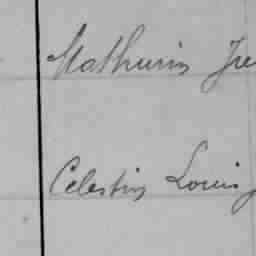 Mathurin
Celestin Louis